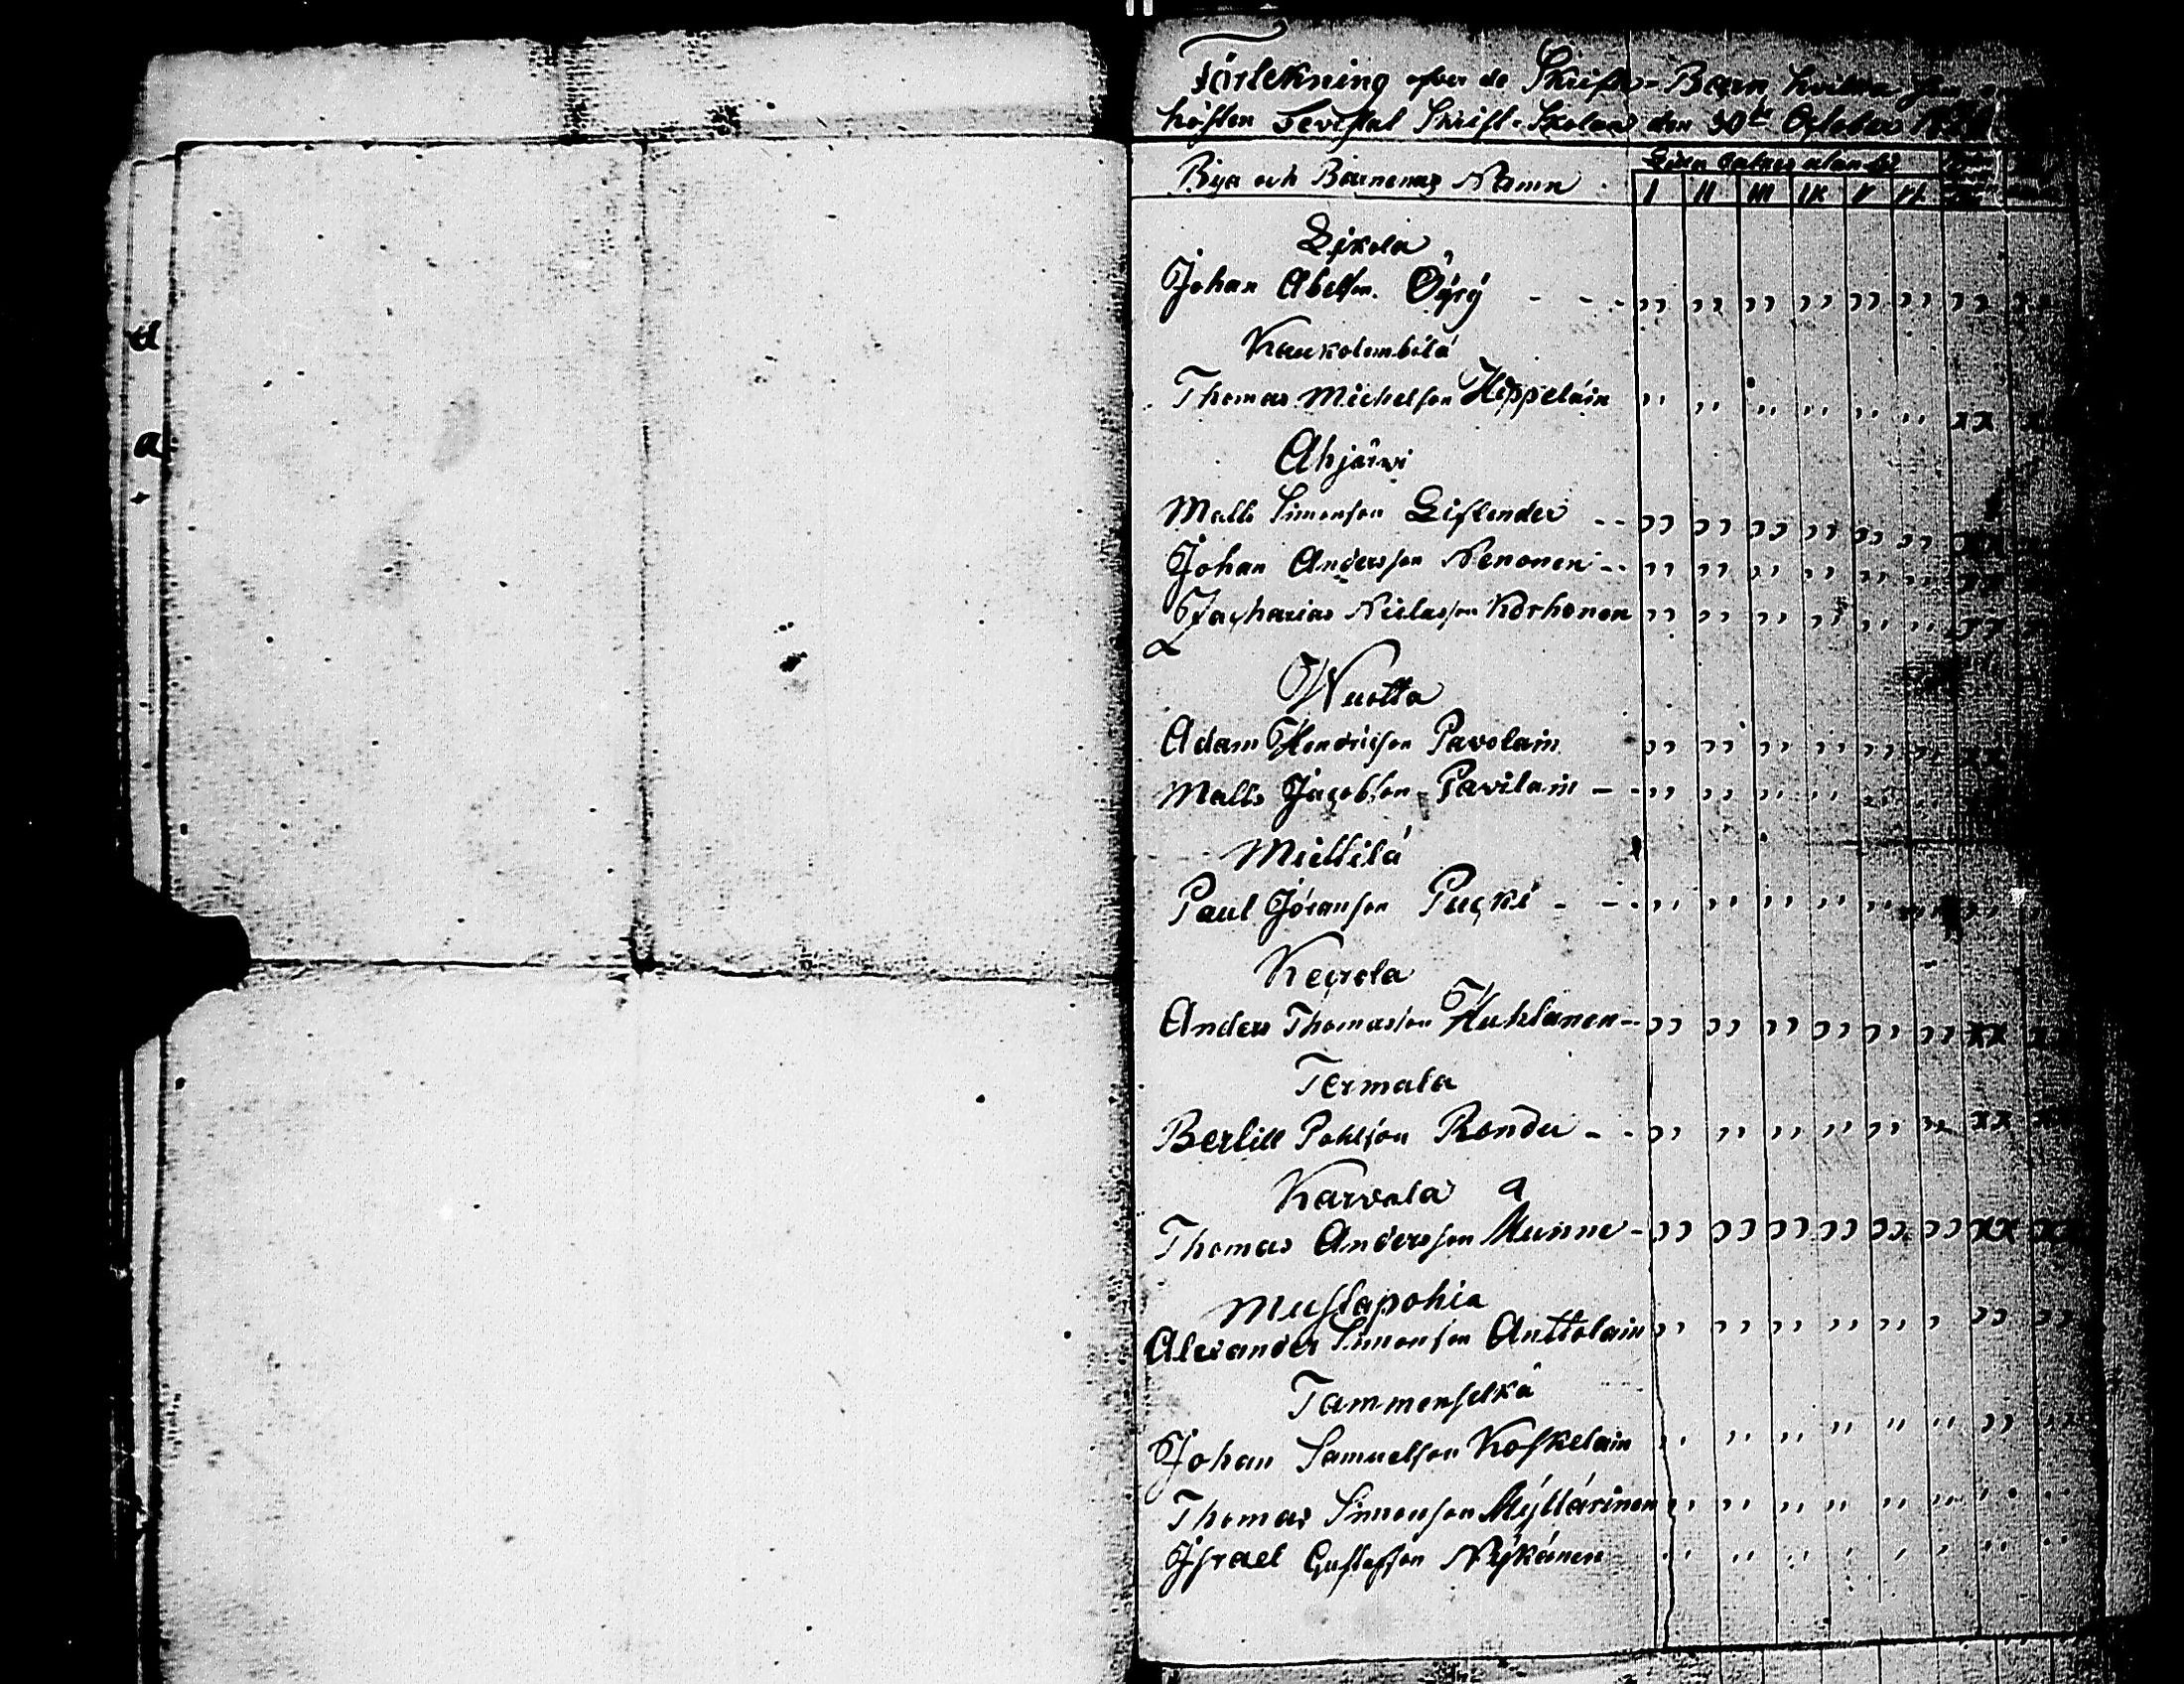 d
a
Förtekning öfver de Skrift-Barn hvilka
hösten bevistat Skrift-Skolan den 30de October
Bya och Barnenas Namn
Läsa Catches utan bok
I II III IV V VI
Sikola
Johan Abelson Öyry - - - ,, ,, ,, ,, ,, ,, ,,
Kaukolembilä
Thomas Michelson Heppeläin ,, ,, ,, ,, ,, ,, xx
Ahjärvi
Matts Simonson Liflender - - ,, ,, ,, ,, ,, ,,
Johan Andersson Nenonen - - ,, ,, ,, ,, ,, ,, xx
Zacharias Niclasson Korhonen ,, ,, ,, ,, ,, ,, xx
Wuotta
Adam Hendricson Pavolain ,, ,, ,, ,, ,, ,,
Matts Jacobson Pavilain - - ,, ,, ,, ,, ,, ,,
Miettilä
Paul Jöranson Pucki - - - ,, ,, ,, ,, ,, ,, ,,
Keurola
Anders Thomasson Huhlanen - - ,, ,, ,, ,, ,, ,, xx
Termala
Bertill Pohlson Rondu - - ,, ,, ,, ,, ,, ,, xx
Karvala a
Thomas Andersson Munne - ,, ,, ,, ,, ,, ,, xx xx
Mustapohia
Alexander Simonson Anttolain ,, ,, ,, ,, ,, , ,, ,,
Tammenselkä
Johan Samuelson Koskelain ,, ,, ,, ,, ,, ,, ,, ,,
Thomas Simonson Myllärinen ,, ,, ,, ,, ,, ,,
Israel Gustafson Nykänen ,, ,, ,,